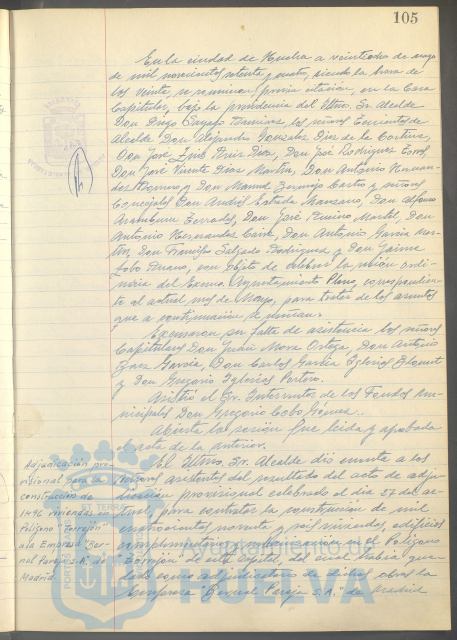 105
En la ciudad de Huelva a veintidos de mayo
de mil novecientos setenta y cuatro, siendo la hora de
las veinte se reunieron previa citación, en la Casa
Capitular, bajo la presidencia del Iltmo. Sr. Alcalde
Don Diego Sayago Ramirez, los señores Tenientes de
Alcalde Don Alejandro Gonzalez Diaz de la Cortina,
Don José Luis Díaz, Don José Rodriguez
Don José Vicente Díaz Martin, Don Antonio Hernan-
dez y Don Manuel Bermejo Castro y señores
Concejales Don Andrés Estrada Manzano, Don Alfonso
Aramburu Terrades, Don José Martel, Don
Antonio Hernandez Don Antonio García Mar-
tin, Don Francisco Salgado Rodriguez y Don Jaime
con objeto de celebrar la sesión ordi-
naria del Excmo. Ayuntamiento Pleno, correspondien-
te al actual mes de Mayo, para tratar de los asuntos
que a continuación se reseñan.
Excusaron su falta de asistencia los señores
Capitulares Don Juan Mora Ortega, Don Antonio
Baez García, Don Carlos García Iglesias
y Don Gregorio Iglesias
Asistió el Sr. Interventor de los Fondos mu-
nicipales Don Gregorio Cobo Gómez.
Abierta la sesión fue leida y aprobada
el acta de la anterior.
El Iltmo. Sr. Alcalde dió cuenta a los
Adjudicación pro-
señores asistentes del resultado del acto de adju-
visional para la
dicación provisional celebrado el dia 21 de ac-
construcción de
tual, para contratar la construccion de mil
1496 viviendas en
cuatrocientas noventa y seis viviendas, edificios
Poligono "Torrejón"
complementarios y urbanización en el Poligono
a la Empresa "Ber-
Torrejón de esta Capital, del que habia que-
nal Pareja S.A." de
dado como adjudicataria de dichas obras la
Madrid
Empresa "Bernal Pareja S.A." de Madrid
Ayuntamiento de
HUELVA